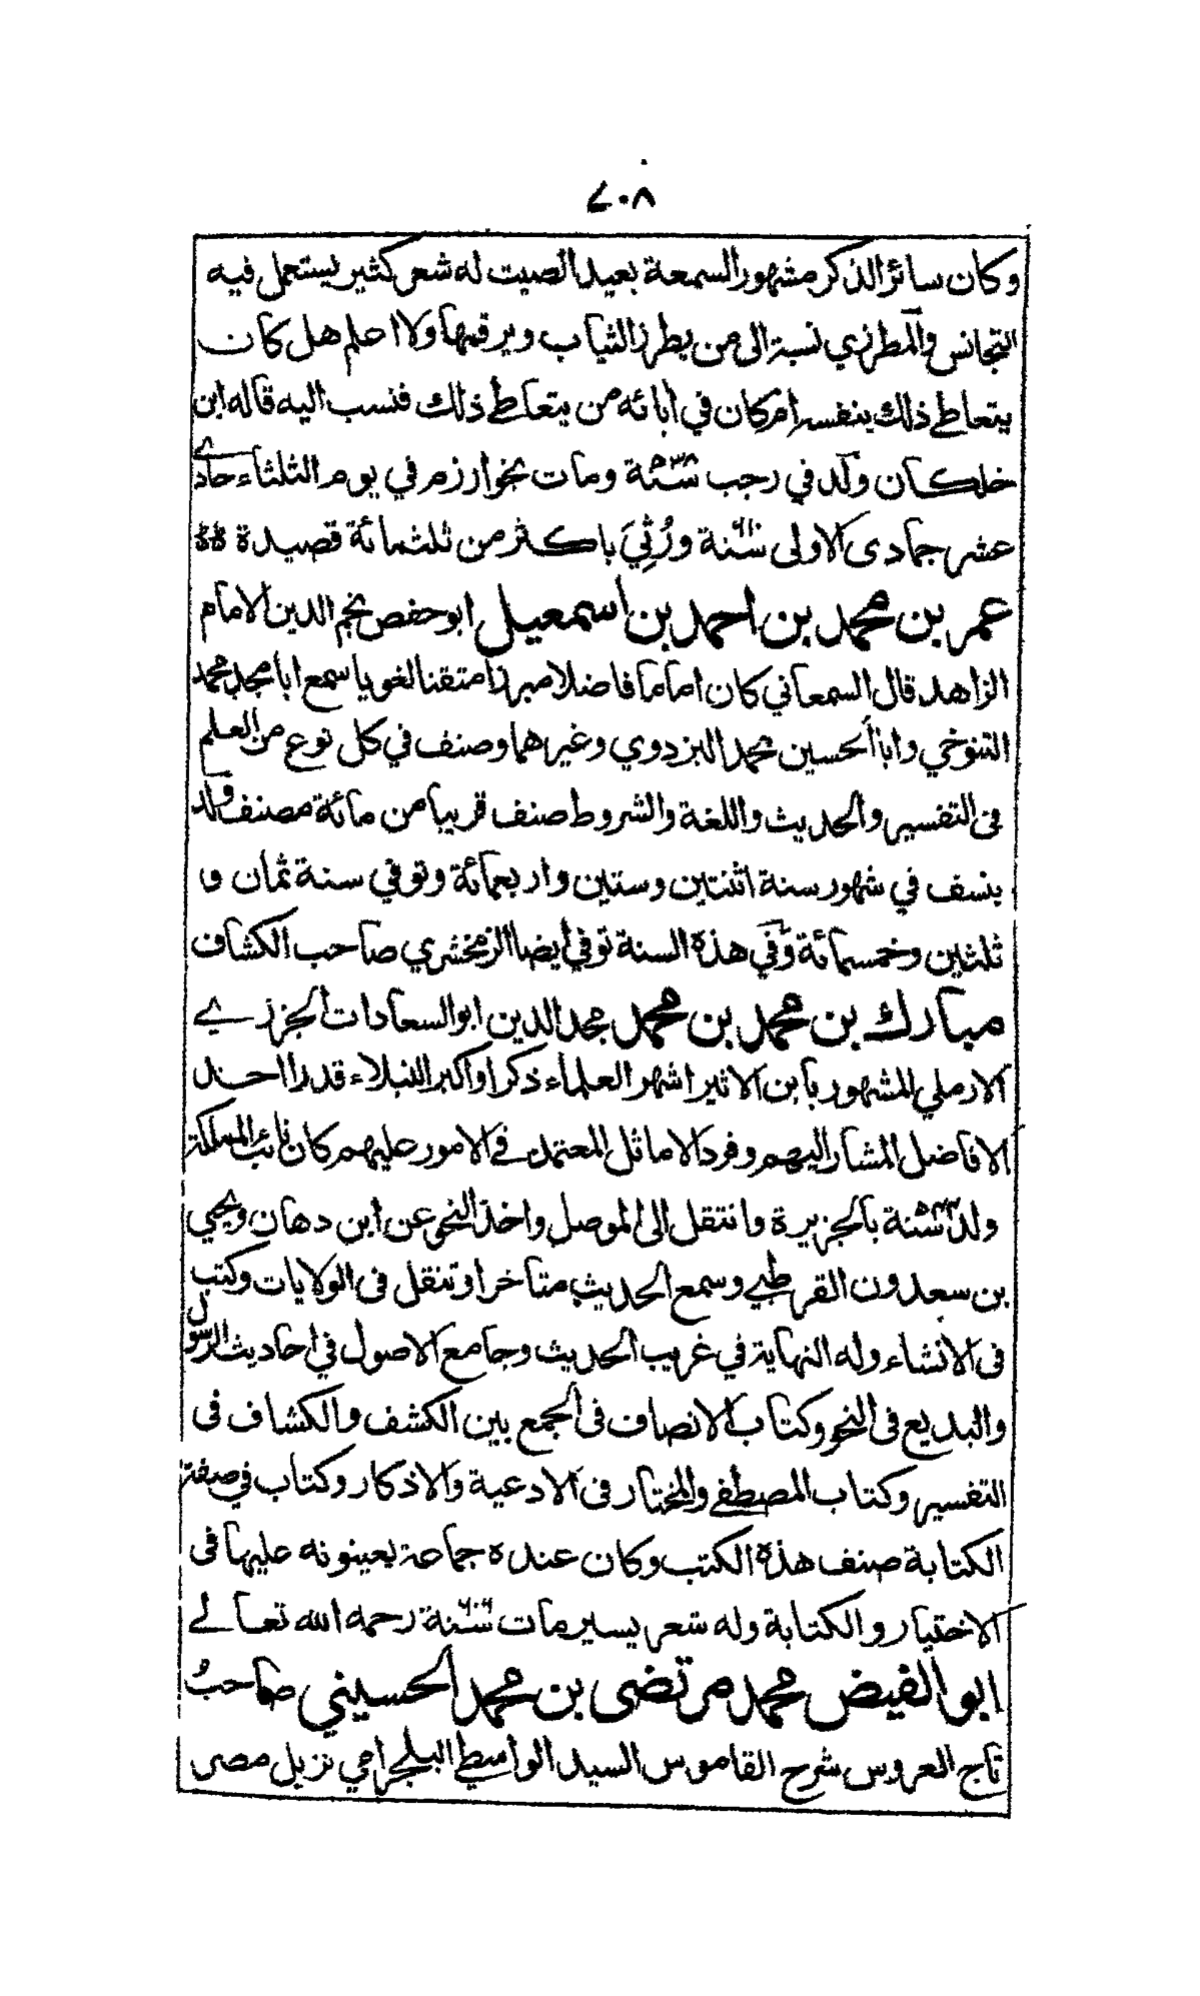 ٧٠٨
وكان سائر الذكر مشهور السمعة بعيد الصيت له شعر كثير يستعمل فيه
التجانس والمطرزي نسبة الى من يطرز الثياب ويرقمها ولا اعلم هل كان
يتعاطے ذلك بنفسه ام كان في آبائه من يتعاطے ذلك فنسب اليه قاله ابن
خلكان ولد في رجب سنة ٥٣٨ ومات بخوارزم في يوم الثلثاء حادے
عشر جمادى الاولى سنة ٦١٠ ورُثِيَ باكثر من ثلثمائة قصيدة
عمر بن محمد بن احمد بن اسمعيل ابو حفص نجم الدين الامام
الزاهد قال السمعاني كان اماما فاضلا مبرزا متقنا لغويا سمع ابا محمد محمد
التنوخي وابا الحسين محمد البزدوي وغيرهما وصنف في كل نوع من العلم
فى التفسير والحديث واللغة والشروط صنف قريبا من مائة مصنف ولد
بنسف في شهور سنة اثنتين وستين واربعمائة وتوفي سنة ثمان و
ثلثين وخمسمائة وفي هذه السنة توفي ايضا الزمخشري صاحب الكشاف
مبارك بن محمد بن محمد مجد الدين ابو السعادات الجزرے
الارملي المشهور بابن الاثير اشهر العلماء ذكرا واكبر النبلاء قدرا احد
الافاضل المشار اليهم وفرد الاماثل المعتمد في الامور عليهم كان نائب المملكة
ولد سنة ٥٤٤ بالجزيرة وانتقل الى الموصل واخذ النحو عن ابن دهان ويحيي
بن سعدون القرطبے وسمع الحديث متاخرا وتنقل فى الولايات وكتب
فى الانشاء وله النهاية في غريب الحديث وجامع الاصول في احاديث الرسول
والبديع فى النحو وكتاب الانصاف فى الجمع بين الكشف والكشاف فى
التفسير وكتاب المصطفے والمختار فى الادعية والاذكار وكتاب في صفة
الكتابة صنف هذه الكتب وكان عنده جماعة يعينونه عليها فى
الاختيار والكتابة وله شعر يسير مات سنة ٦٠٦ رحمه الله تعالے
ابو الفيض محمد مرتضى بن محمد الحسيني صاحبُ
تاج العروس شرح القاموس السيد الواسطي البلجرامي نزيل مصر